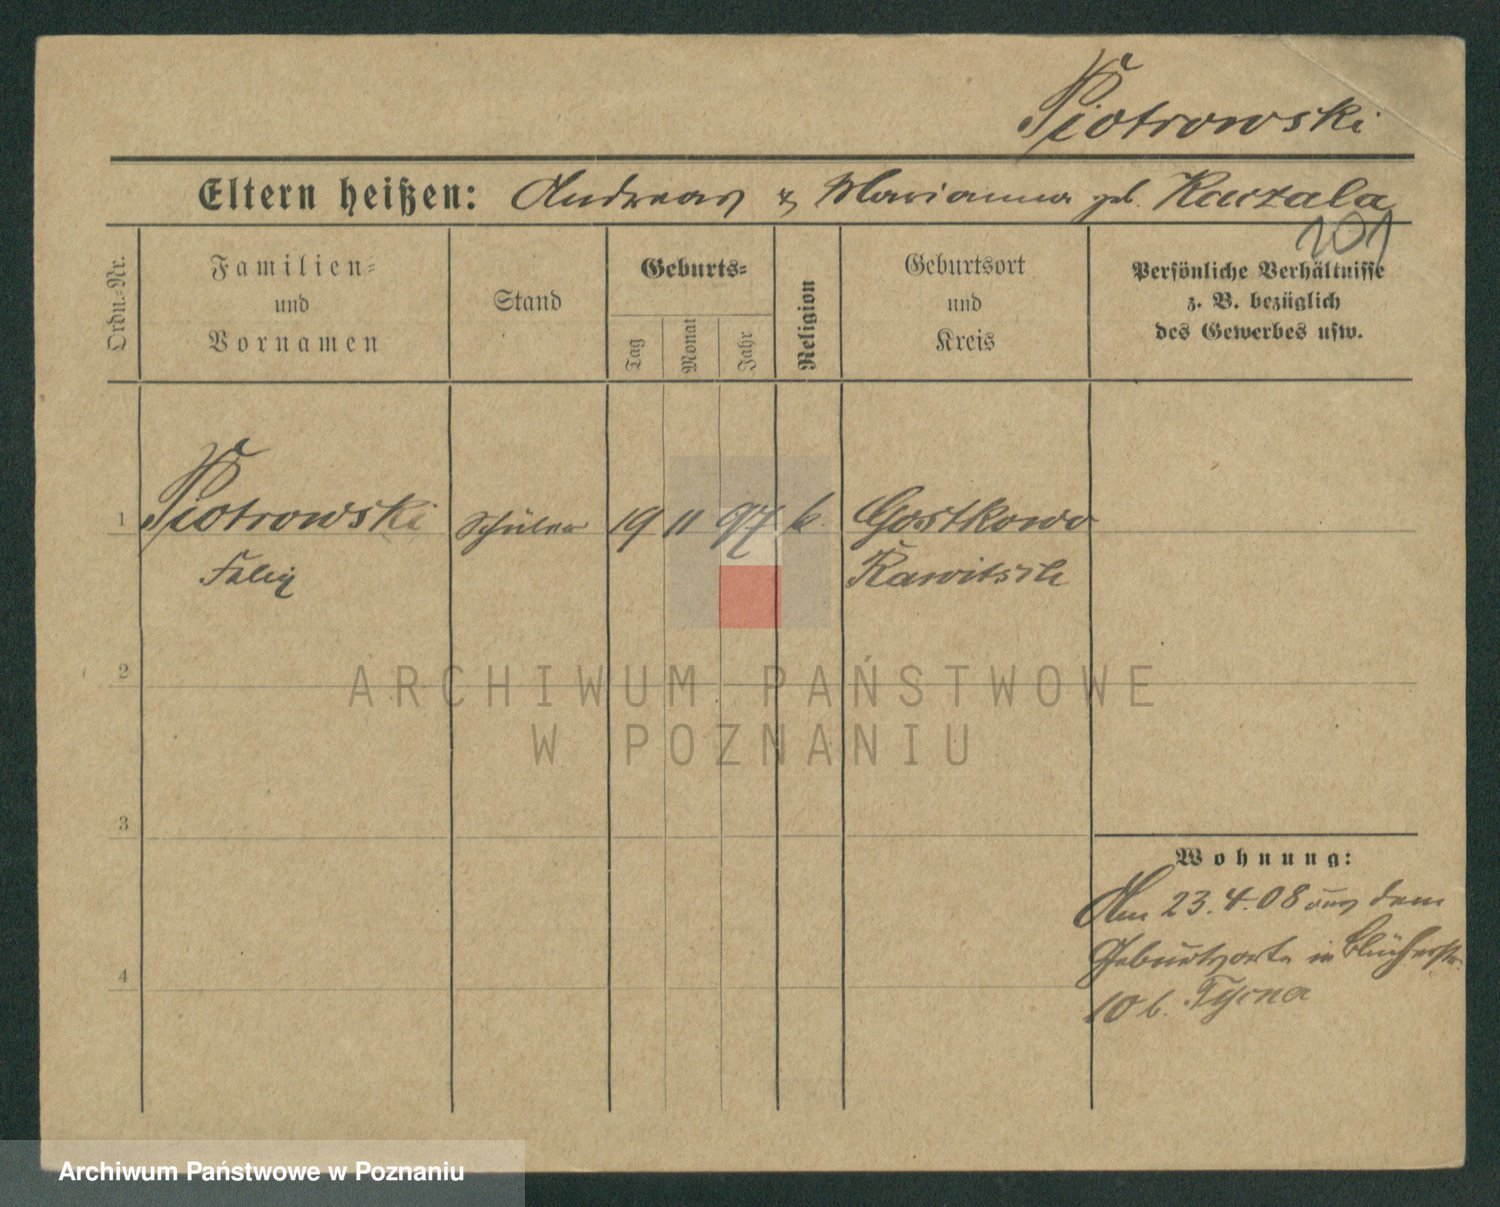 Piotrowski
Eltern heißen: Andreas & Marianna geb. Kaczala
101
Ordn.-Nr.
Familien-
und
Vornamen
Stand
Geburts-
Tag
Monat
Jahr
Religion
Geburtsort
und
Kreis
Persönliche Verhältnisse
z. B. bezüglich
des Gewerbes usw.
1 Piotrowski Schüler 19 11 97 k. Gostkowo
Felix Rawitsch
2
3
4
Wohnung:
Am 23.4.08 aus dem
Geburtsorte in Blücherstr.
10 b.
ARCHIWUM PAŃSTWOWE
W POZNANIU
Archiwum Państwowe w Poznaniu